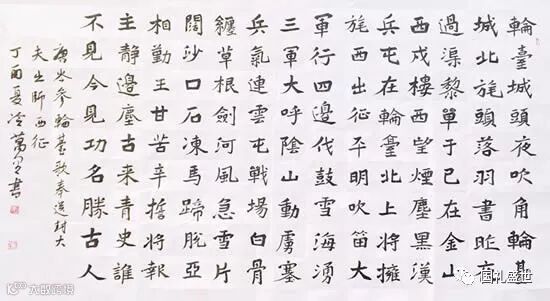 輪臺城頭夜吹角輪臺
城北旄頭落羽書昨夜
過渠黎單于已在金山
西戍樓西望煙塵黑漢
兵屯在輪臺北上將擁
旄西出征平明吹笛大
軍行四邊伐鼓雪海湧
三軍大呼陰山動虜塞
兵氣連雲屯戰場白骨
纏草根劍河風急雪片
闊沙口石凍馬蹄脫亞
相勤王甘苦辛誓將報
主靜邊塵古来青史誰
不見今見功名勝古人
唐岑參輪臺歌奉送封大
夫出師西征
丁酉夏冷萬里書
国礼盛世